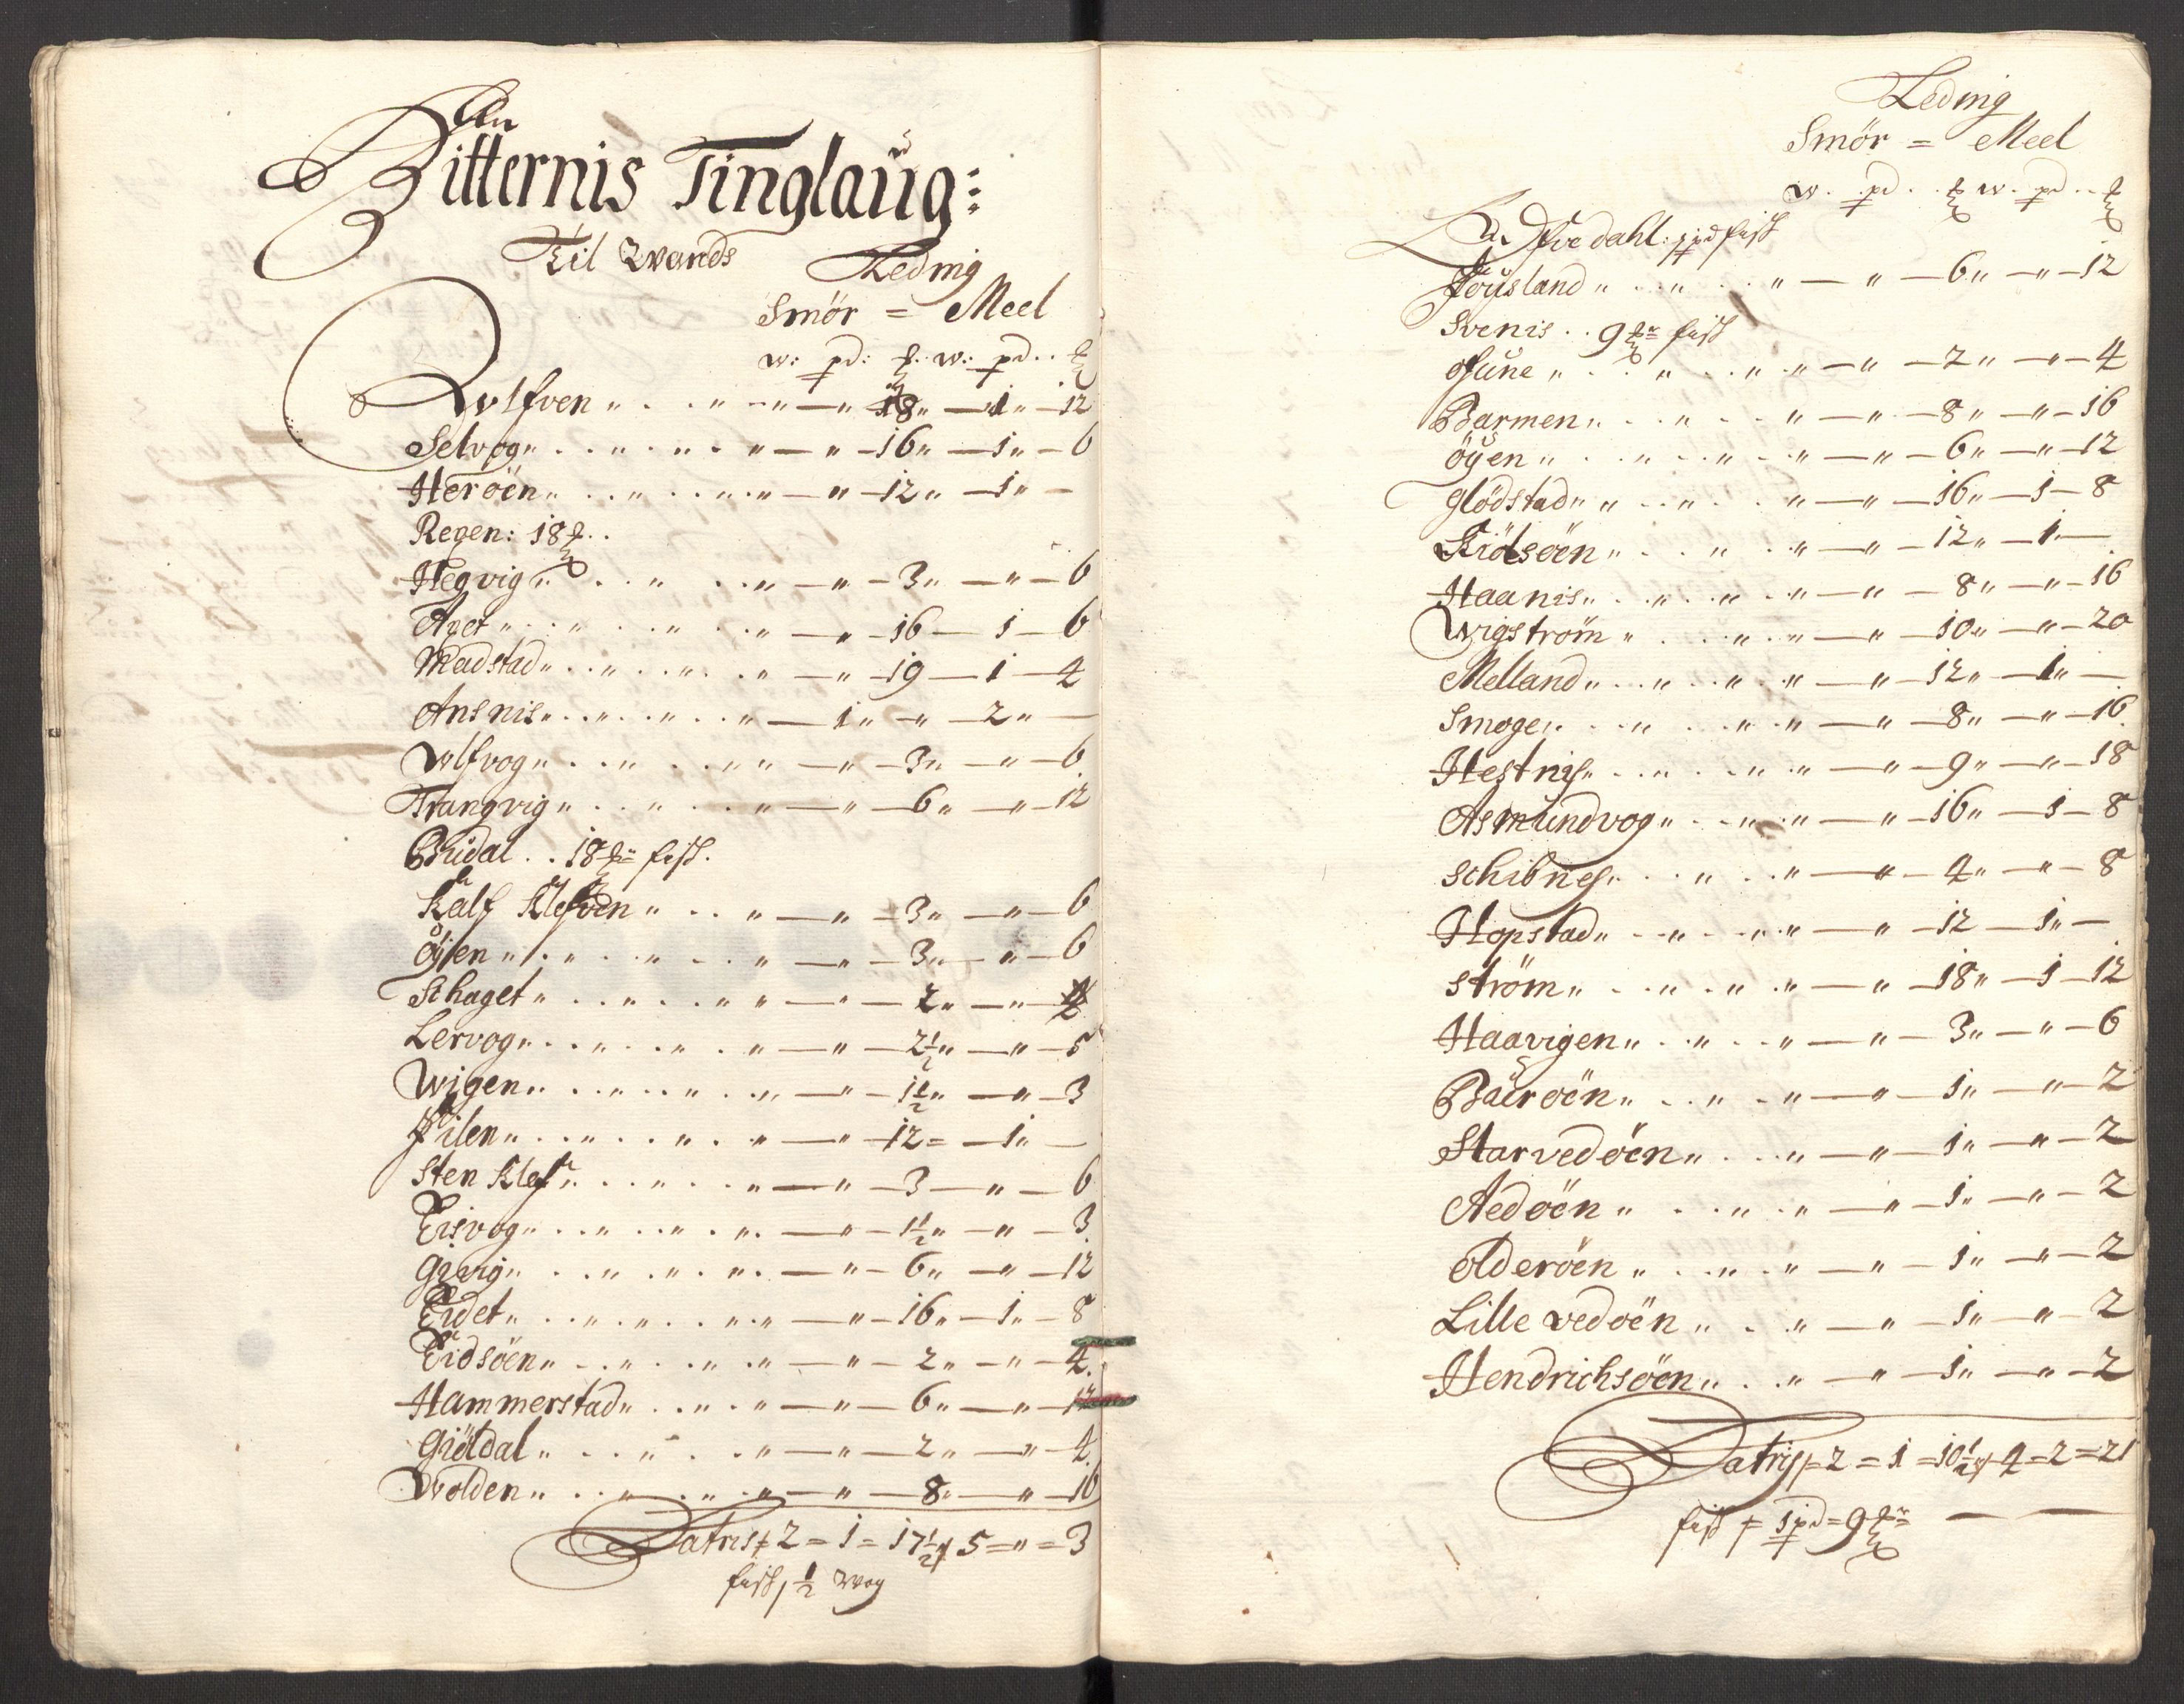 Bitternis Tinglaug:
Til Wands Leding
Smör = Meel
w: pd: ℔. w: pd.. ℔
Wlfven „ . . „ „ — „ 18 „ — 1 „ — 12
Selvog „ . . „ „ . „ — „ — 16 „ — 1 „ — 6
Heröen „ . . „ . . „ „ — „ — 12 „ — 1 „ —
Regen: 18 ℔ . .
Hegvig „ . . „ . . „ — „ — 3 „ — „ — 6
Aget „ . . „ . . „ — „ — 16 — 1 — 6
Madstad „ . . „ . . „ — „ — 19 — 1 — 4
Ansnis „ . . „ . . „ — 1 „ — „ — 2 „ —
Wlfvog „ . . „ . . „ „ — „ — 3 „ — „ — 6
Trangvig „ . . „ . . „ — „ — 6 „ — „ — 12
Budal . . 18 ℔ fisk.
Kalf Klefven „ . . „ — „ — 3 „ — „ — 6
öyen „ . „ . „ . . „ — „ — 3 „ — „ — 6
Schaget „ . . „ . . „ „ — „ — 2 „ — „ — 4
Lervog „ . . „ . „ . „ — „ — 2½ „ — „ — 5
Wigen „ . . „ . . „ . „ — „ — 1½ „ — „ — 3
Kilen „ . . „ . . „ . „ — „ — 12 = — 1 „ —
Sten Klef „ . . „ . . „ — „ — 3 — „ — 6
Eisvog „ . . „ . . „ . „ — „ — 1½ „ — „ — 3
Gievig „ . . „ . „ . „ — „ — 6 „ — „ — 12
Eidet „ . . „ . „ . „ „ — „ — 16 „ — 1 „ — 8
Eidsöen „ . . „ . . „ „ — „ — 2 „ — „ — 4
Hammerstad „ . . „ . „ — „ — 6 „ — „ — 12
Giöldal „ . . „ . . „ — „ — 2 „ — „ — 4
Wolden „ . . „ . „ „ — „ — 8 „ — „ — 16
Latris 2 = 1 = 17½ / 5 = „ = 3
fisk, ½ Wog
Leding
Smör = Meel
w. pd. . ℔ w. pd . . ℔
dahl: 1 pd fisk
Föysland „ . . „ . . „ — „ — 6 „ — „ — 12
Svenis . . 9 ℔ fisk
fune „ . . „ . . „ „ — „ — 2 „ — „ — 4
Barmen „ . . „ . . „ — „ — 8 „ — „ — 16
öyen „ . . „ . . „ „ — „ — 6 „ — „ — 12
Glödstad „ „ . . „ . „ — „ — 16 „ — 1 — 8
Kiölsöen „ . . „ . „ — „ — 12 „ — 1 „ —
Haanis „ . . „ . „ „ — „ — 8 „ — „ — 16
Wigström „ . . „ „ — „ — 10 „ — „ — 20
Melland „ . . „ . „ „ — „ — 12 „ — 1 „ —
Smoge „ . . „ . . „ „ — „ — 8 „ — „ — 16
Hestnis „ . . „ . . „ „ — „ — 9 „ — „ — 18
Asmundvog „ . . „ „ — „ — 16 „ — 1 — 8
Schibnes „ . . „ . . „ — „ — 4 „ — „ — 8
Hopstad „ . . „ . . „ „ — „ — 12 — 1 „ —
ström „ . . „ . „ „ — „ — 18 „ — 1 — 12
Haavigen „ . . „ . . „ — „ — 3 „ — „ — 6
Bauröen „ . . „ . „ — „ — 1 „ — „ — 2
Starvedöen „ . . „ — „ — 1 „ — „ — 2
Aedöen „ . . „ . „ — „ — 1 „ — „ — 2
olderöen „ . . „ „ — „ — 1 „ — „ — 2
Lille vedöen „ . . „ — „ — 1 „ — „ — 2
Hendrichsöen „ . . „ — „ — 1 „ — „ — 2
Latris 2 = 1 = 10½ / 4 = 2 = 21
fisk = 1 pd = 9 ℔ — —